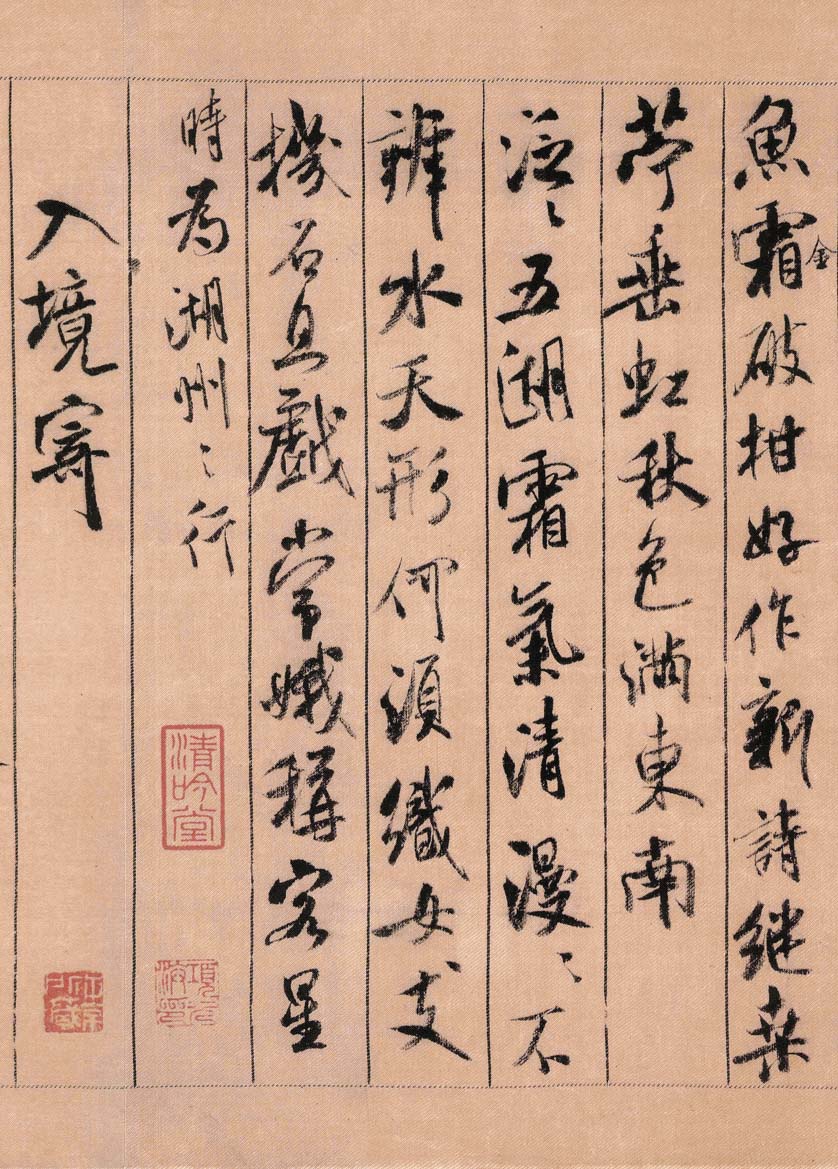 魚霜破柑好作新詩継桒
金
苧垂虹秋色滿東南
泛〻五湖霜氣清漫〻不
辨水天形何須織女支
機石且戲常娥稱客星
時為湖州〻行
清吟堂
入境寄